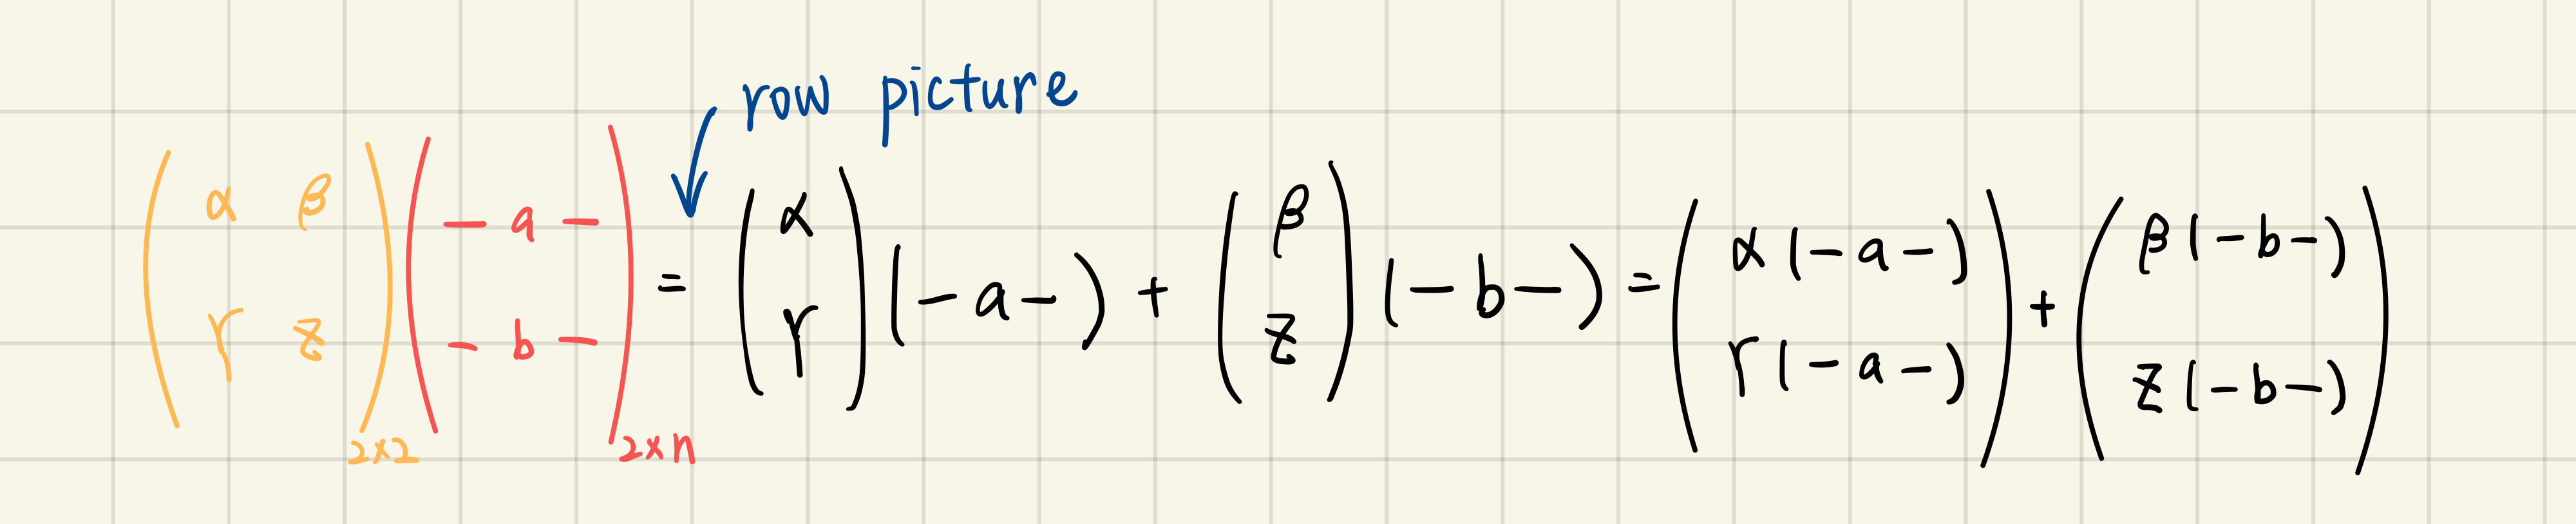 row picture
(α β
γ z)2×2 (— a —
— b —)2×n = (α
γ)(— a —) + (β
z)(— b —) = (α(— a —)
γ(— a —)) + (β(— b —)
z(— b —))